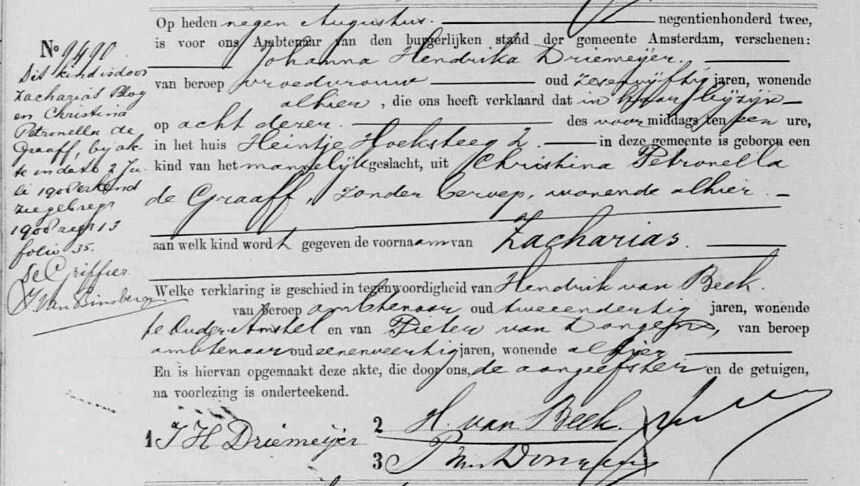 Nº 9490
Dit kind is door
Zacharias Blog
en Christina
Petronella de
Graaff, by ak-
te in dato 2 Ju-
li 1908 erkend
zie gebreg
1908 reg 13
folio 35.
de Griffier
Op heden negen Augustus. negentienhonderd twee,
is voor ons Ambtenaar van den burgerlijken stand der gemeente Amsterdam, verschenen:
Johanna Hendrika Driemeijer.
van beroep vroedvrouw oud zesenvijftig jaren, wonende
alhier, die ons heeft verklaard dat in haar bijzijn
op acht dezer. des voormiddags ten een ure,
in het huis Heintje Hoeksteeg 2. in deze gemeente is geboren een
kind van het mannelijk geslacht, uit Christina Petronella
de Graaff, zonder beroep, wonende alhier.
aan welk kind wordt gegeven de voornaam van Zacharias.
Welke verklaring is geschied in tegenwoordigheid van Hendrik van Beek.
van beroep ambtenaar oud tweeendertig jaren, wonende
te Ouder-Amstel en van Pieter van Dongen, van beroep
ambtenaar oud eenenveertig jaren, wonende alhier
En is hiervan opgemaakt deze akte, die door ons, de aangeefster en de getuigen,
na voorlezing is onderteekend.
1 J H Driemeijer
2 H. van Beek.
3 P van Dongen